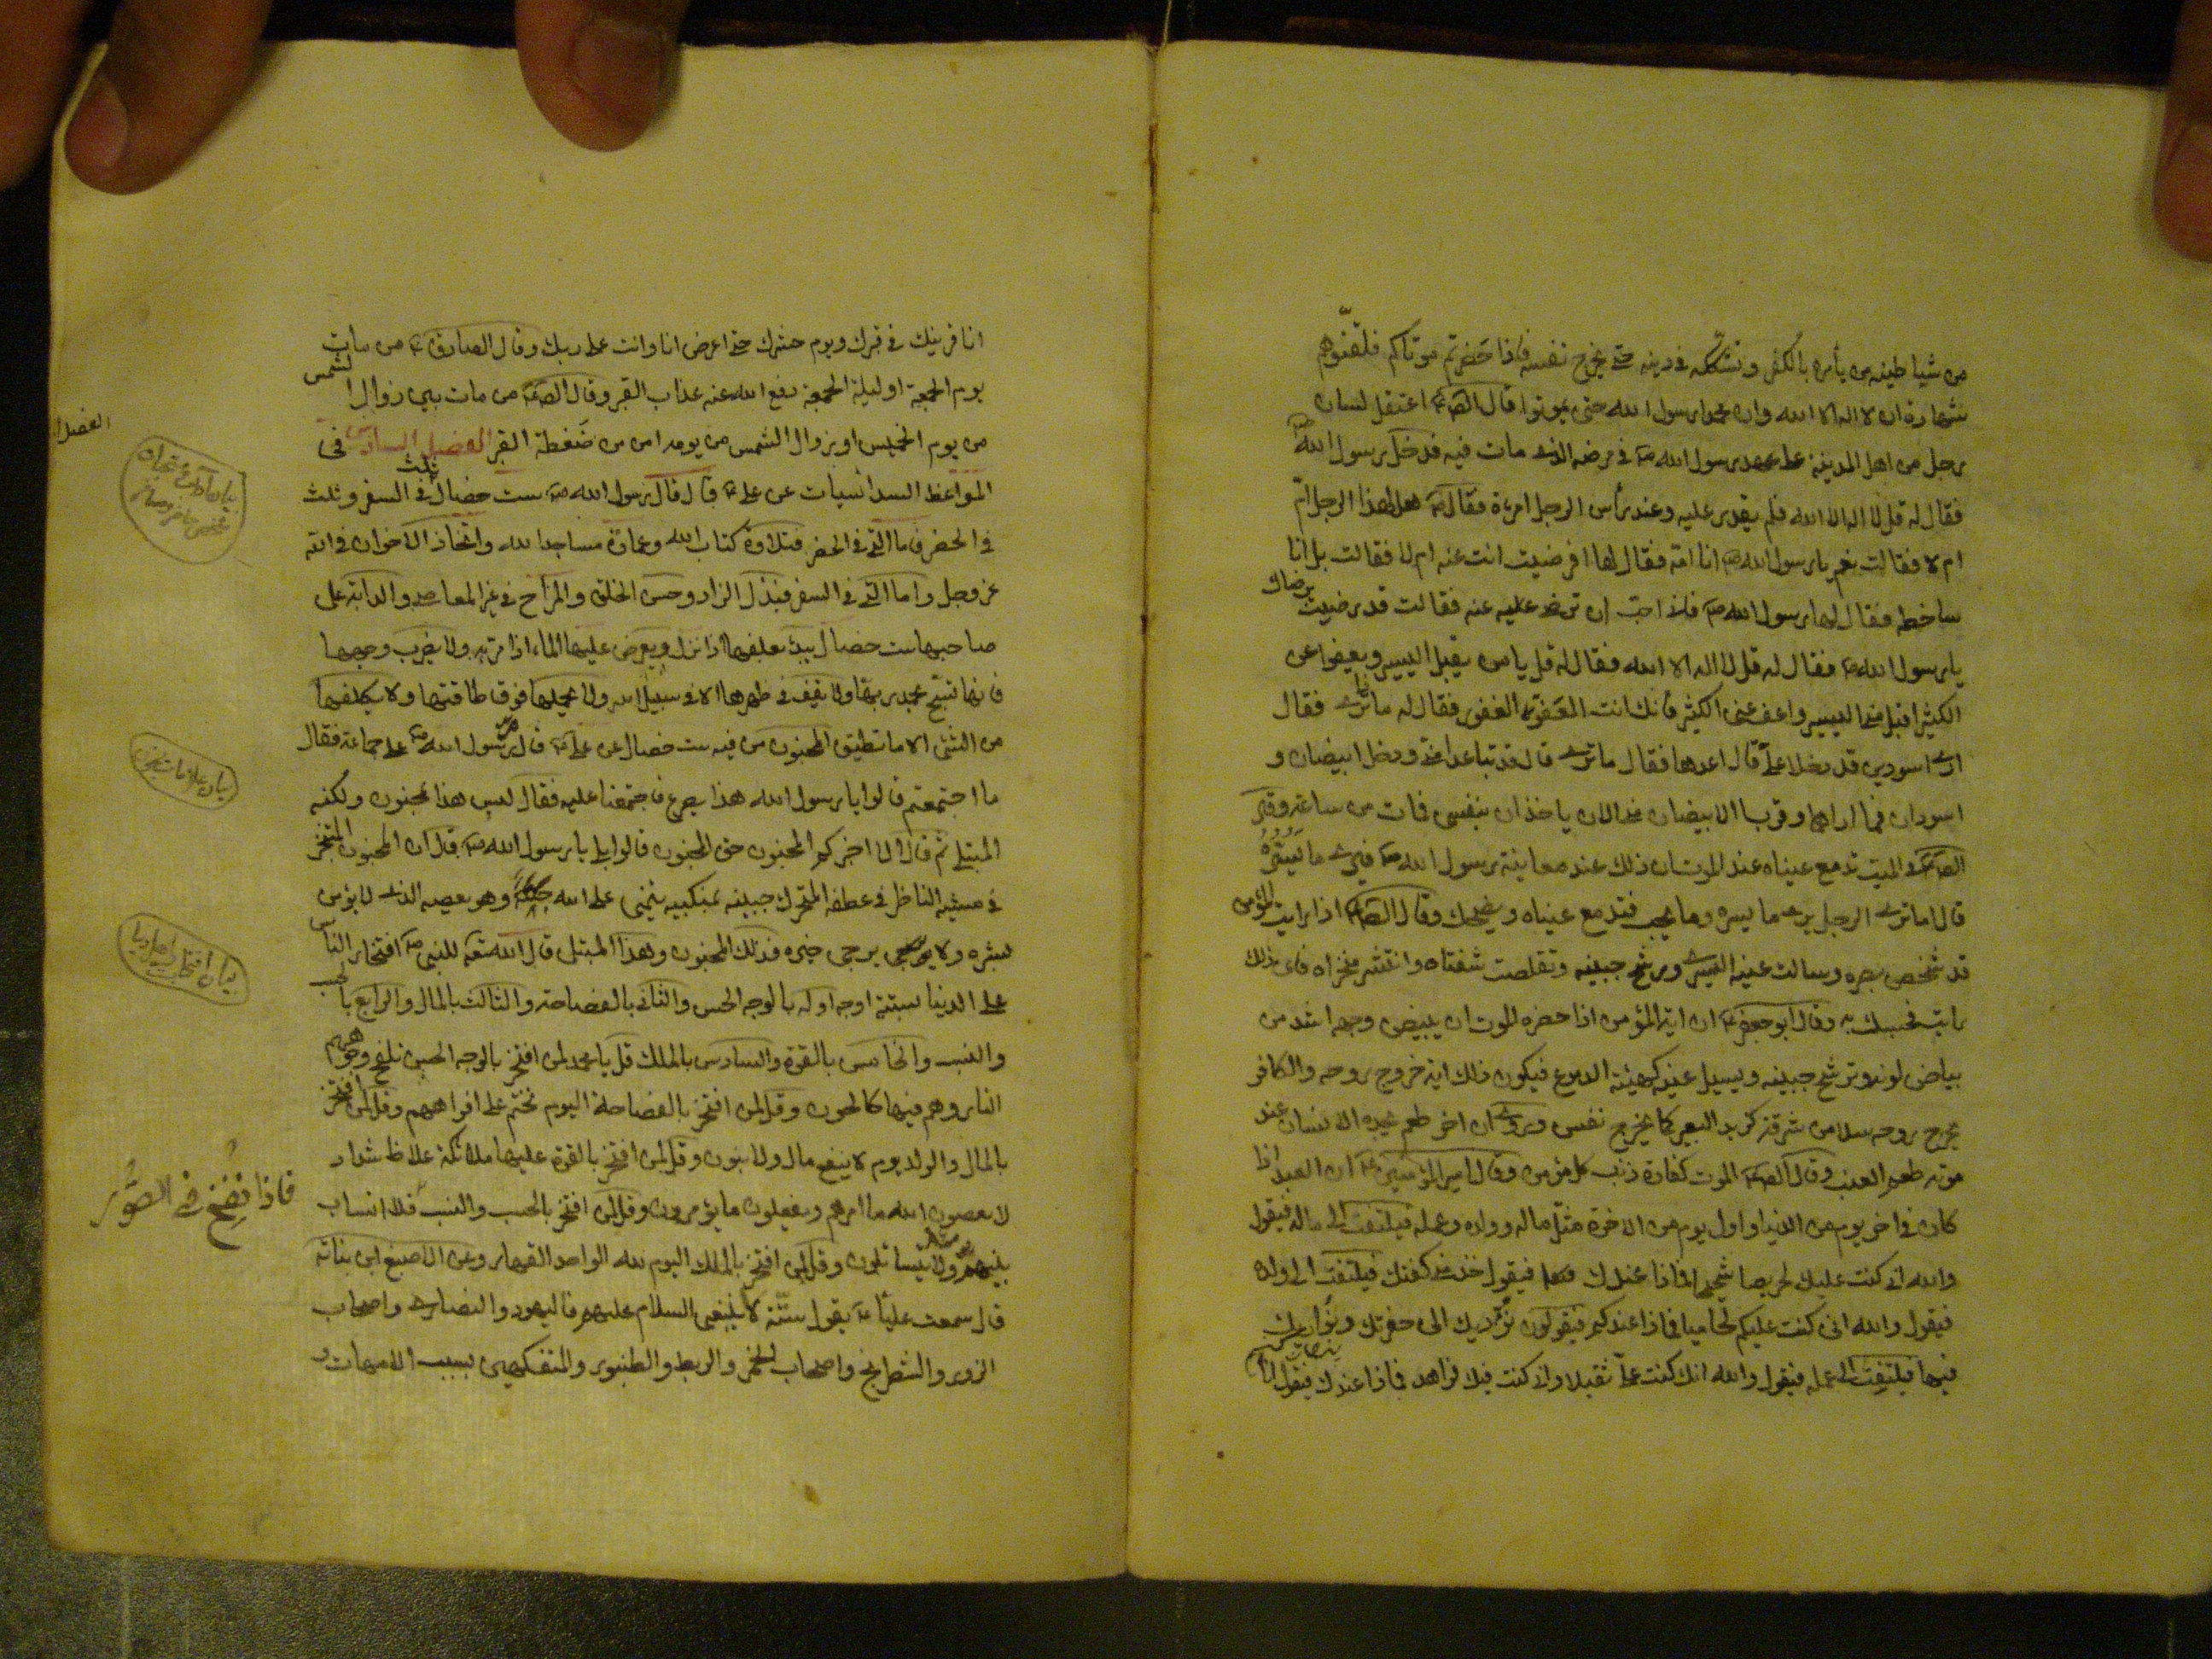 من شياطينه من يأمره بالكفر وتشكّكه في دينه حتى يخرج نفسه فاذا حَضَرتم موتاكم فلقّنوهم
شهادة ان لا اله الا الله وان محمدا رسول الله حتى يموتوا قال الصّ ع اعتقل لسان
رجل من اهل المدينة على عهد رسول الله ص في مرضه الذى مات فيه فدخل رسول الله ص
فقال له قل لا اله الا الله فلم يقدر عليه وعند رأس الرجل امرءة فقال ص هل لهذا الرجل ام
ام لا فقالت نعم يا رسول الله ص انا امّه فقال لها افرضيت انت عنه ام لا فقالت بل انا
ساخطه فقال لها رسول الله ص فانى احبّ ان ترضى عليه عنه فقالت قد رضيت برضاك
يا رسول الله ص فقال له قل لا اله الا الله فقال له قل يا من يقبل اليسير ويعفو عن
الكثير اقبل منى اليسير واعف عنى الكثير فانك انت العفو الغفور فقال له ماذا ترى فقال
ارى اسودين قد دخلا علىّ قال اعدها فقال ما ترى قال قد تباعدا عنى ودخل ابيضان و
اسودان فما اراهما وقرب الابيضان منى الان ياخذان بنفسى فمات من ساعته وقال
الصّ ع الميت تدمع عيناه عند الموت ان ذلك عند معاينة رسول الله ص فيرى ما يَسُرُّهُ
قال اما ترى الرجل يرى ما يسره وما يحب فتدمع عيناه ويضحك وقال الصّ ع اذا رايت المؤمن
قد شخص بصره وسالت عينه اليسرى ورشح جبينه وتقلصت شفتاه وانتشر منخراه فاى ذلك
رايت فحسبك به وقال ابو جعفر ع ان اية المؤمن اذا حضره الموت ان يبيض وجهه اشد من
بياض لونه وترشح جبينه ويسيل عينه كهيئة الدموع فيكون ذلك اية خروج روحه والكافر
يخرج روحه سلا من شدقه كزبد البعير كما يخرج نفس وروى ان اخر طعم يجده الانسان عند
موته طعم العنب وقال الصّ ع الموت كفارة ذنب كل مؤمن وقال امير المؤمنين ع ان العبد اذا
كان في اخر يوم من الدنيا واول يوم من الاخرة مثّل ماله وولده وعمله فيلتفت الى ماله فيقول
والله انى كنت عليك لحريصا شحيحا فماذا عندك فيقول خذ منى كفنك فيلتفت الى ولده
فيقول والله انى كنت عليكم لحاميا فماذا عندكم فيقولون نؤديك الى حفرتك ونواريك
فيها فيلتفت الى عمله فيقول والله انك كنت علىّ ثقيلا وانى كنت فيك لزاهد فماذا عندك فيقول انا
انا قرينك في قبرك ويوم حشرك حتى اعرض انا وانت على ربك وقال الصادق ع من مات
يوم الجمعة او ليلة الجمعة رفع الله عنه عذاب القبر وقال الصّ ع من مات بين زوال الشمس
من يوم الخميس او بزوال الشمس من يومه امن من ضَغطة القبر الفصل السادس في
المواعظ السداسيات عن على ع قال قال رسول الله ص ست خصال ثلث في السفر وثلث
في الحضر فاما التى في الحضر فتلاوة كتاب الله وعمارة مساجد الله واتخاذ الاخوان في الله
عز وجل واما التى في السفر فبذل الزاد وحسن الخلق والمزاح في غير المعاصى وللدابة على
صاحبها ست خصال يبدء بعلفها اذا نزل ويعرض عليها الماء اذا مر به ولا يضرب وجهها
فانها تسبّح بحمد ربها ولا يقف في ظهرها الا في سبيل الله ولا يحملها فوق طاقتها ولا يكلفها
من المشى الا ما تطيق المجنون من فيه ست خصال عن على ع قال مر رسول الله ص على جماعة فقال
ما اجتمعتم قالوا يا رسول الله هذا يصرع فاجتمعنا عليه فقال ليس هذا بمجنون ولكنه
المبتلى ثم قال الا اخبركم المجنون حق المجنون قالوا بلى يا رسول الله ص قال ان المجنون المتبختر
في مشيه الناظر في عطفه المتحرك جبينه بمنكبيه يتمنى على الله جنته وهو يعصيه الذى لا يؤمن
بشره ولا يرجى خيره فذلك المجنون وهذا المبتلى قال الله تعه للنبى ص افتخار الناس
على الدنيا لستة اوجه اوله بالوجه الحسن والثانى بالفصاحة والثالث بالمال والرابع بالحسب
والنسب والخامس بالقوة والسادس بالملك قل يا محمد لمن افتخر بالوجه الحسن تلفح وجوههم
النار وهم فيها كالحون وقل لمن افتخر بالفصاحة اليوم نختم على افواههم وقل لمن افتخر
بالمال والولد يوم لا ينفع مال ولا بنون وقل لمن افتخر بالقوة عليها ملائكة غلاظ شداد
لا يعصون الله ما امرهم ويفعلون ما يؤمرون وقل لمن افتخر بالحسب والنسب فلا انساب
بينهم يومئذ ولا يتسائلون وقل لمن افتخر بالملك اليوم لله الواحد القهار وعن الاصبغ ابن نباته
قال سمعت عليّا ع يقول ستّة لا ينبغى السلام عليهم فاليهود والنصارى واصحاب
النرد والشطرنج واصحاب الخمر والربط والطنبور والمتفكهين بسبب الامهات و
الفصل ا
بيان علامات مجنون
بيان افتخار اهل دنيا
فاذا نُفِخَ في الصُّور